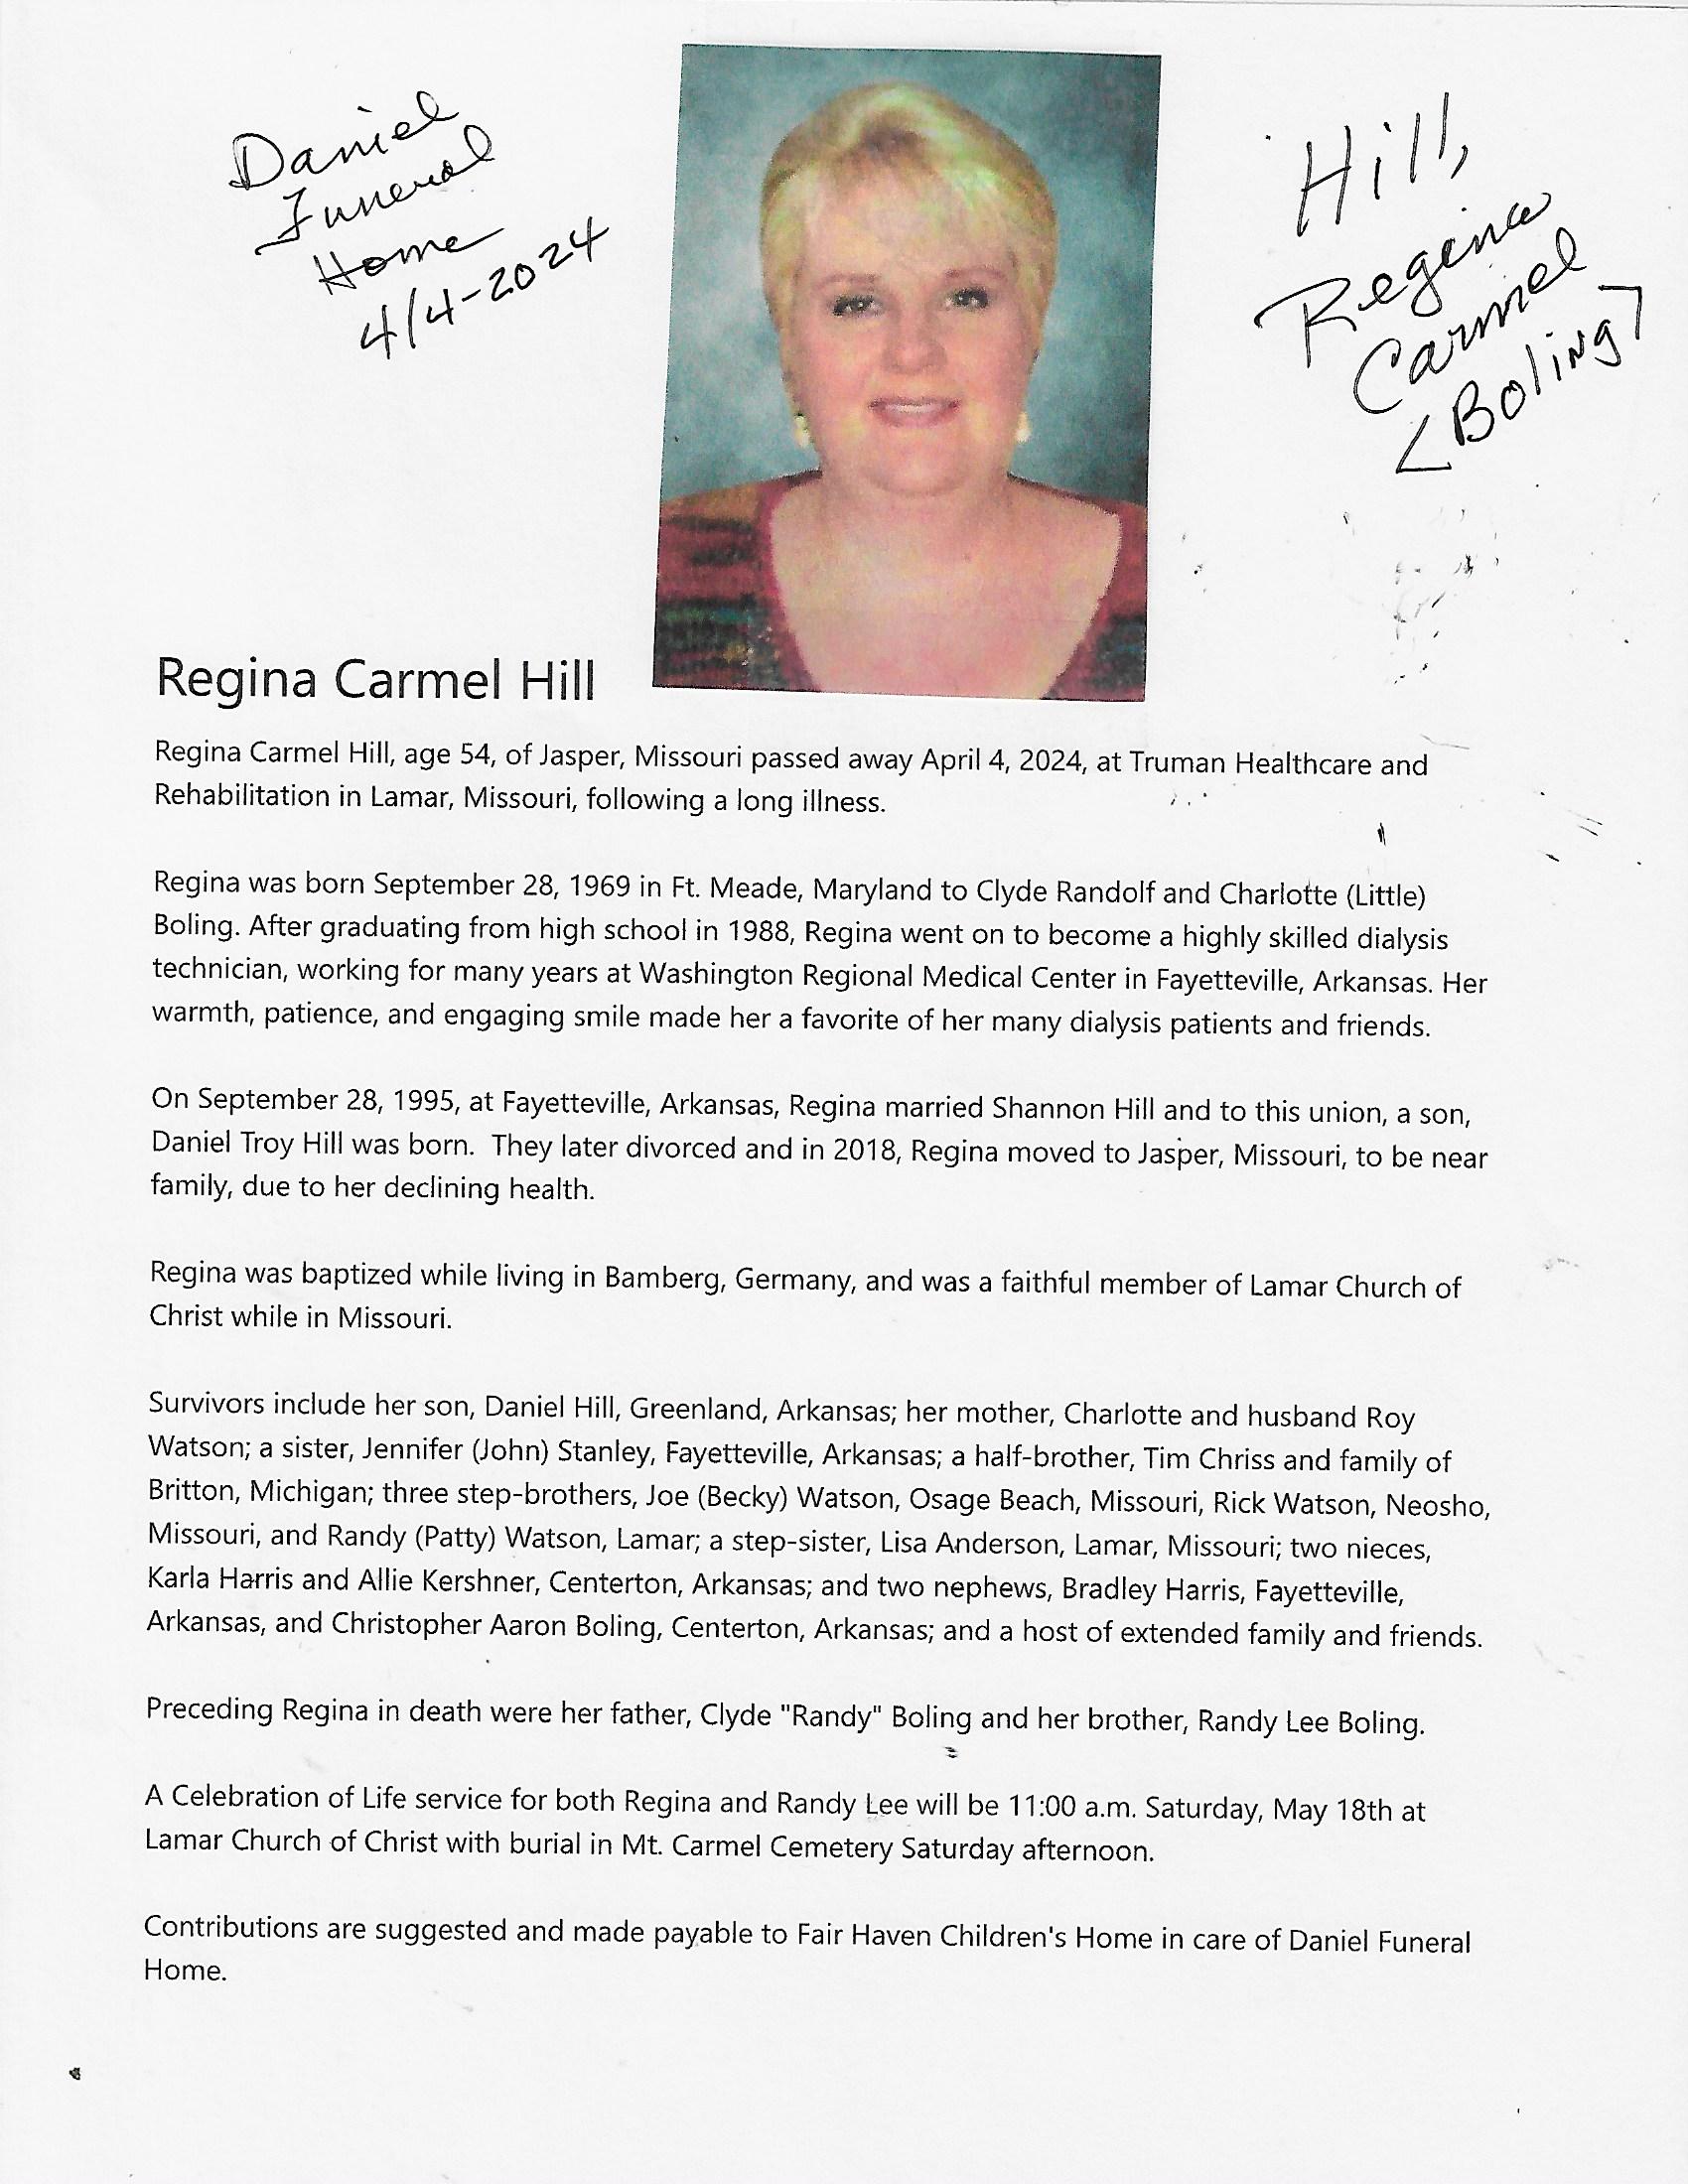 Daniel
Funeral
Home
4/4-2024
Hill,
Regina
Carmel
<Boling>
Regina Carmel Hill
Regina Carmel Hill, age 54, of Jasper, Missouri passed away April 4, 2024, at Truman Healthcare and
Rehabilitation in Lamar, Missouri, following a long illness.
Regina was born September 28, 1969 in Ft. Meade, Maryland to Clyde Randolf and Charlotte (Little)
Boling. After graduating from high school in 1988, Regina went on to become a highly skilled dialysis
technician, working for many years at Washington Regional Medical Center in Fayetteville, Arkansas. Her
warmth, patience, and engaging smile made her a favorite of her many dialysis patients and friends.
On September 28, 1995, at Fayetteville, Arkansas, Regina married Shannon Hill and to this union, a son,
Daniel Troy Hill was born.  They later divorced and in 2018, Regina moved to Jasper, Missouri, to be near
family, due to her declining health.
Regina was baptized while living in Bamberg, Germany, and was a faithful member of Lamar Church of
Christ while in Missouri.
Survivors include her son, Daniel Hill, Greenland, Arkansas; her mother, Charlotte and husband Roy
Watson; a sister, Jennifer (John) Stanley, Fayetteville, Arkansas; a half-brother, Tim Chriss and family of
Britton, Michigan; three step-brothers, Joe (Becky) Watson, Osage Beach, Missouri, Rick Watson, Neosho,
Missouri, and Randy (Patty) Watson, Lamar; a step-sister, Lisa Anderson, Lamar, Missouri; two nieces,
Karla Harris and Allie Kershner, Centerton, Arkansas; and two nephews, Bradley Harris, Fayetteville,
Arkansas, and Christopher Aaron Boling, Centerton, Arkansas; and a host of extended family and friends.
Preceding Regina in death were her father, Clyde "Randy" Boling and her brother, Randy Lee Boling.
A Celebration of Life service for both Regina and Randy Lee will be 11:00 a.m. Saturday, May 18th at
Lamar Church of Christ with burial in Mt. Carmel Cemetery Saturday afternoon.
Contributions are suggested and made payable to Fair Haven Children's Home in care of Daniel Funeral
Home.